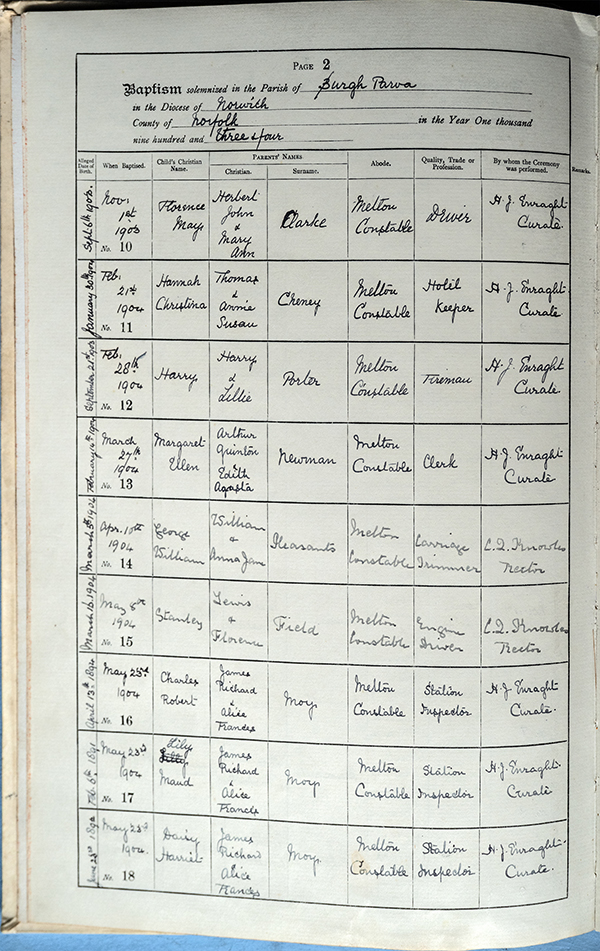 PAGE 2
Baptism solemnized in the Parish of Burgh Parva
in the Diocese of Norwich
County of Norfolk in the Year One thousand
nine hundred and three & four
Alleged Date of Birth.
When Baptised.
Child's Christian Name.
PARENTS' NAMES
Christian.
Surname.
Abode.
Quality, Trade or Profession.
By whom the Ceremony was performed.
Remarks.
Sept 6th 1903.
Nov. 1st 1903
No. 10
Florence May
Herbert John & Mary Ann
Clarke
Melton Constable
H. J. Enraght Curate.
January 30th 1904
Feb. 21st 1904
No. 11
Hannah Christina
Thomas & Annie Susan
Cheney
Melton Constable
Hotel Keeper
H. J. Enraght Curate
September 21st 1903
Feb. 28th 1904
No. 12
Harry
Harry & Lillie
Porter
Melton Constable
Fireman
H. J. Enraght Curate.
February 14th 1904
March 27th 1904
No. 13
Margaret Ellen
Arthur Quinton & Edith Agasta
Newman
Melton Constable
Clerk
H. J. Enraght Curate
March 5th 1904
Apr. 10th 1904
No. 14
George William
William & Anna Jane
Pleasants
Melton Constable
Carriage Trimmer
Knowles Rector
March 16. 1904
May 8th 1904
No. 15
Stanley
Lewis & Florence
Field
Melton Constable
Engine Driver
Knowles Rector
April 13th 1894
May 23rd 1904
No. 16
Charles Robert
James Richard & Alice Frances
Moys
Melton Constable
Station Inspector
H. J. Enraght Curate.
Feb. 6th 1891
May 23rd 1904
No. 17
Lily Maud
James Richard & Alice Frances
Moys
Melton Constable
Station Inspector
H. J. Enraght Curate
June 23rd 1892
May 23rd 1904.
No. 18
Daisy Harriet
James Richard & Alice Frances
Moys
Melton Constable
Station Inspector
H. J. Enraght. Curate.